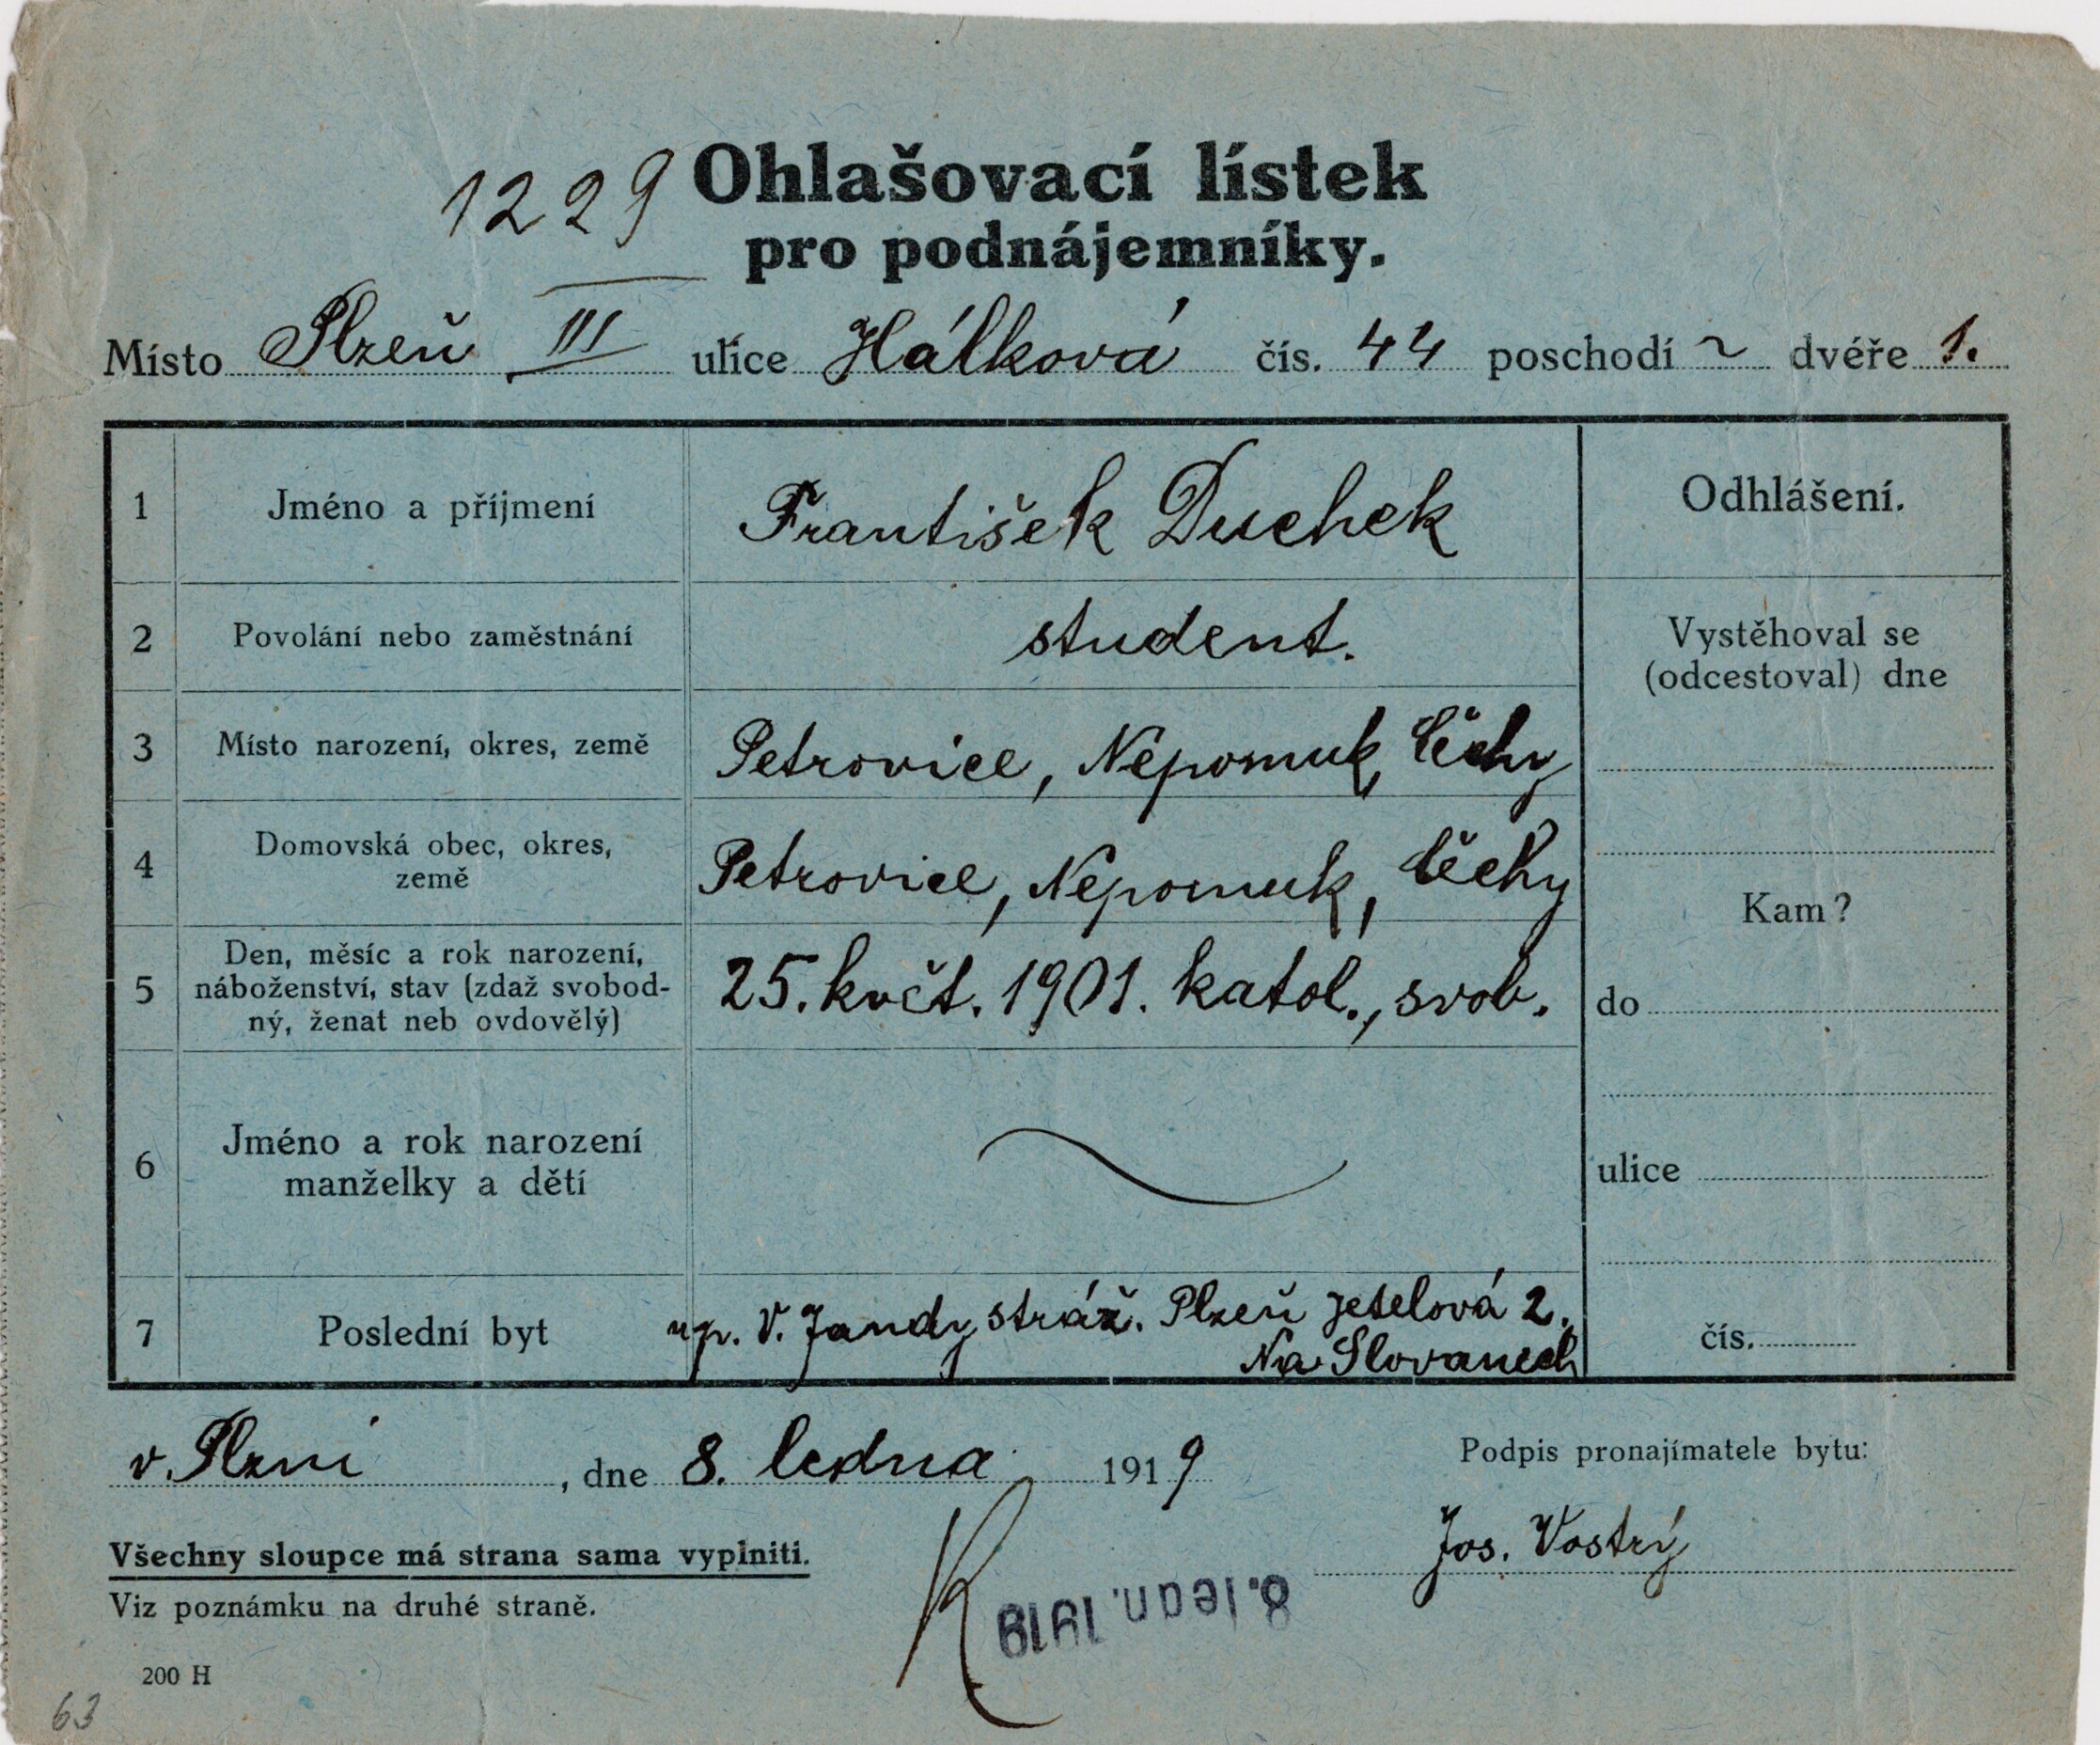 1229 Ohlašovací lístek
pro podnájemníky.
Místo Plzeň III ulice Hálková čís. 44 poschodí ~ dvéře 1.
1 Jméno a příjmení František Duchek Odhlášení.
2 Povolání nebo zaměstnání student. Vystěhoval se
(odcestoval) dne
3 Místo narození, okres, země Petrovice, Nepomuk, Čěchy
4 Domovská obec, okres,
země Petrovice, Nepomuk, Čěchy
Kam?
5 Den, měsíc a rok narození,
náboženství, stav (zdaž svobod-
ný, ženat neb ovdovělý) 25. květ. 1901. katol., svob.
do
6 Jméno a rok narození
manželky a dětí
ulice
7 Poslední byt up. V. Jandy stráž. Plzeň Jetelová 2.
Na Slovanech
čís.
v Plzni, dne 8. ledna 1919
Podpis pronajímatele bytu:
Jos. Vostrý
Všechny sloupce má strana sama vyplniti.
Viz poznámku na druhé straně.
K
8. ledn. 1919
200 H
63